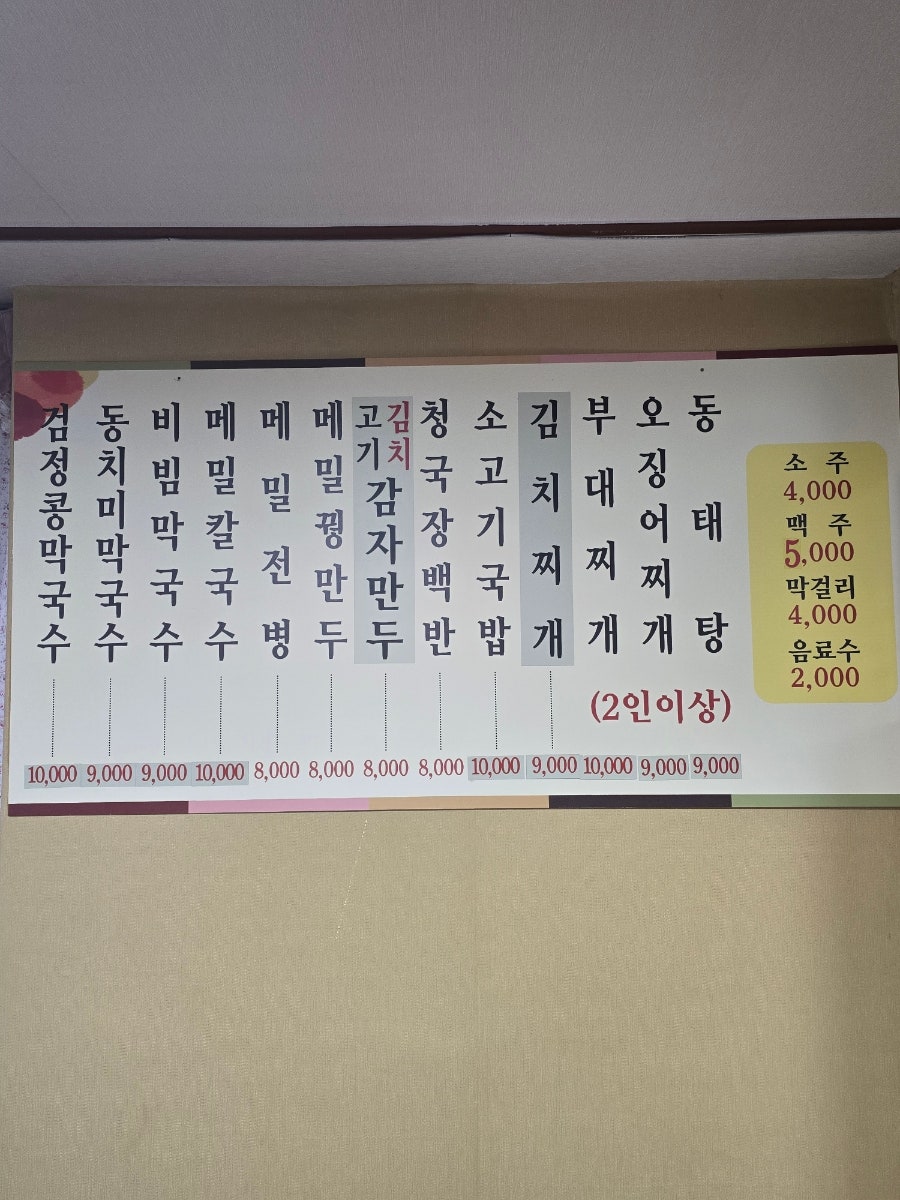 검정콩막국수 10,000
동치미막국수 9,000
비빔막국수 9,000
메밀칼국수 10,000
메밀전병 8,000
메밀꿩만두 8,000
고기 김치 감자만두 8,000
청국장백반 8,000
소고기국밥 10,000
김치찌개 9,000
부대찌개 10,000
오징어찌개 9,000
동태탕 9,000
(2인이상)
소주
4,000
맥주
5,000
막걸리
4,000
음료수
2,000